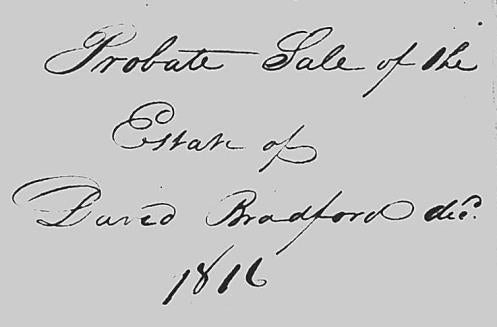 Probate Sale of the
Estate of
David Bradford decd.
1816